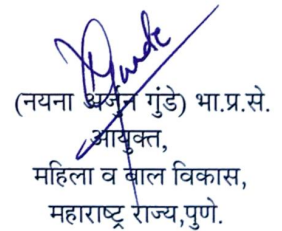 (नयना अर्जुन गुंडे) भा.प्र.से.
आयुक्त,
महिला व बाल विकास,
महाराष्ट्र राज्य,पुणे.